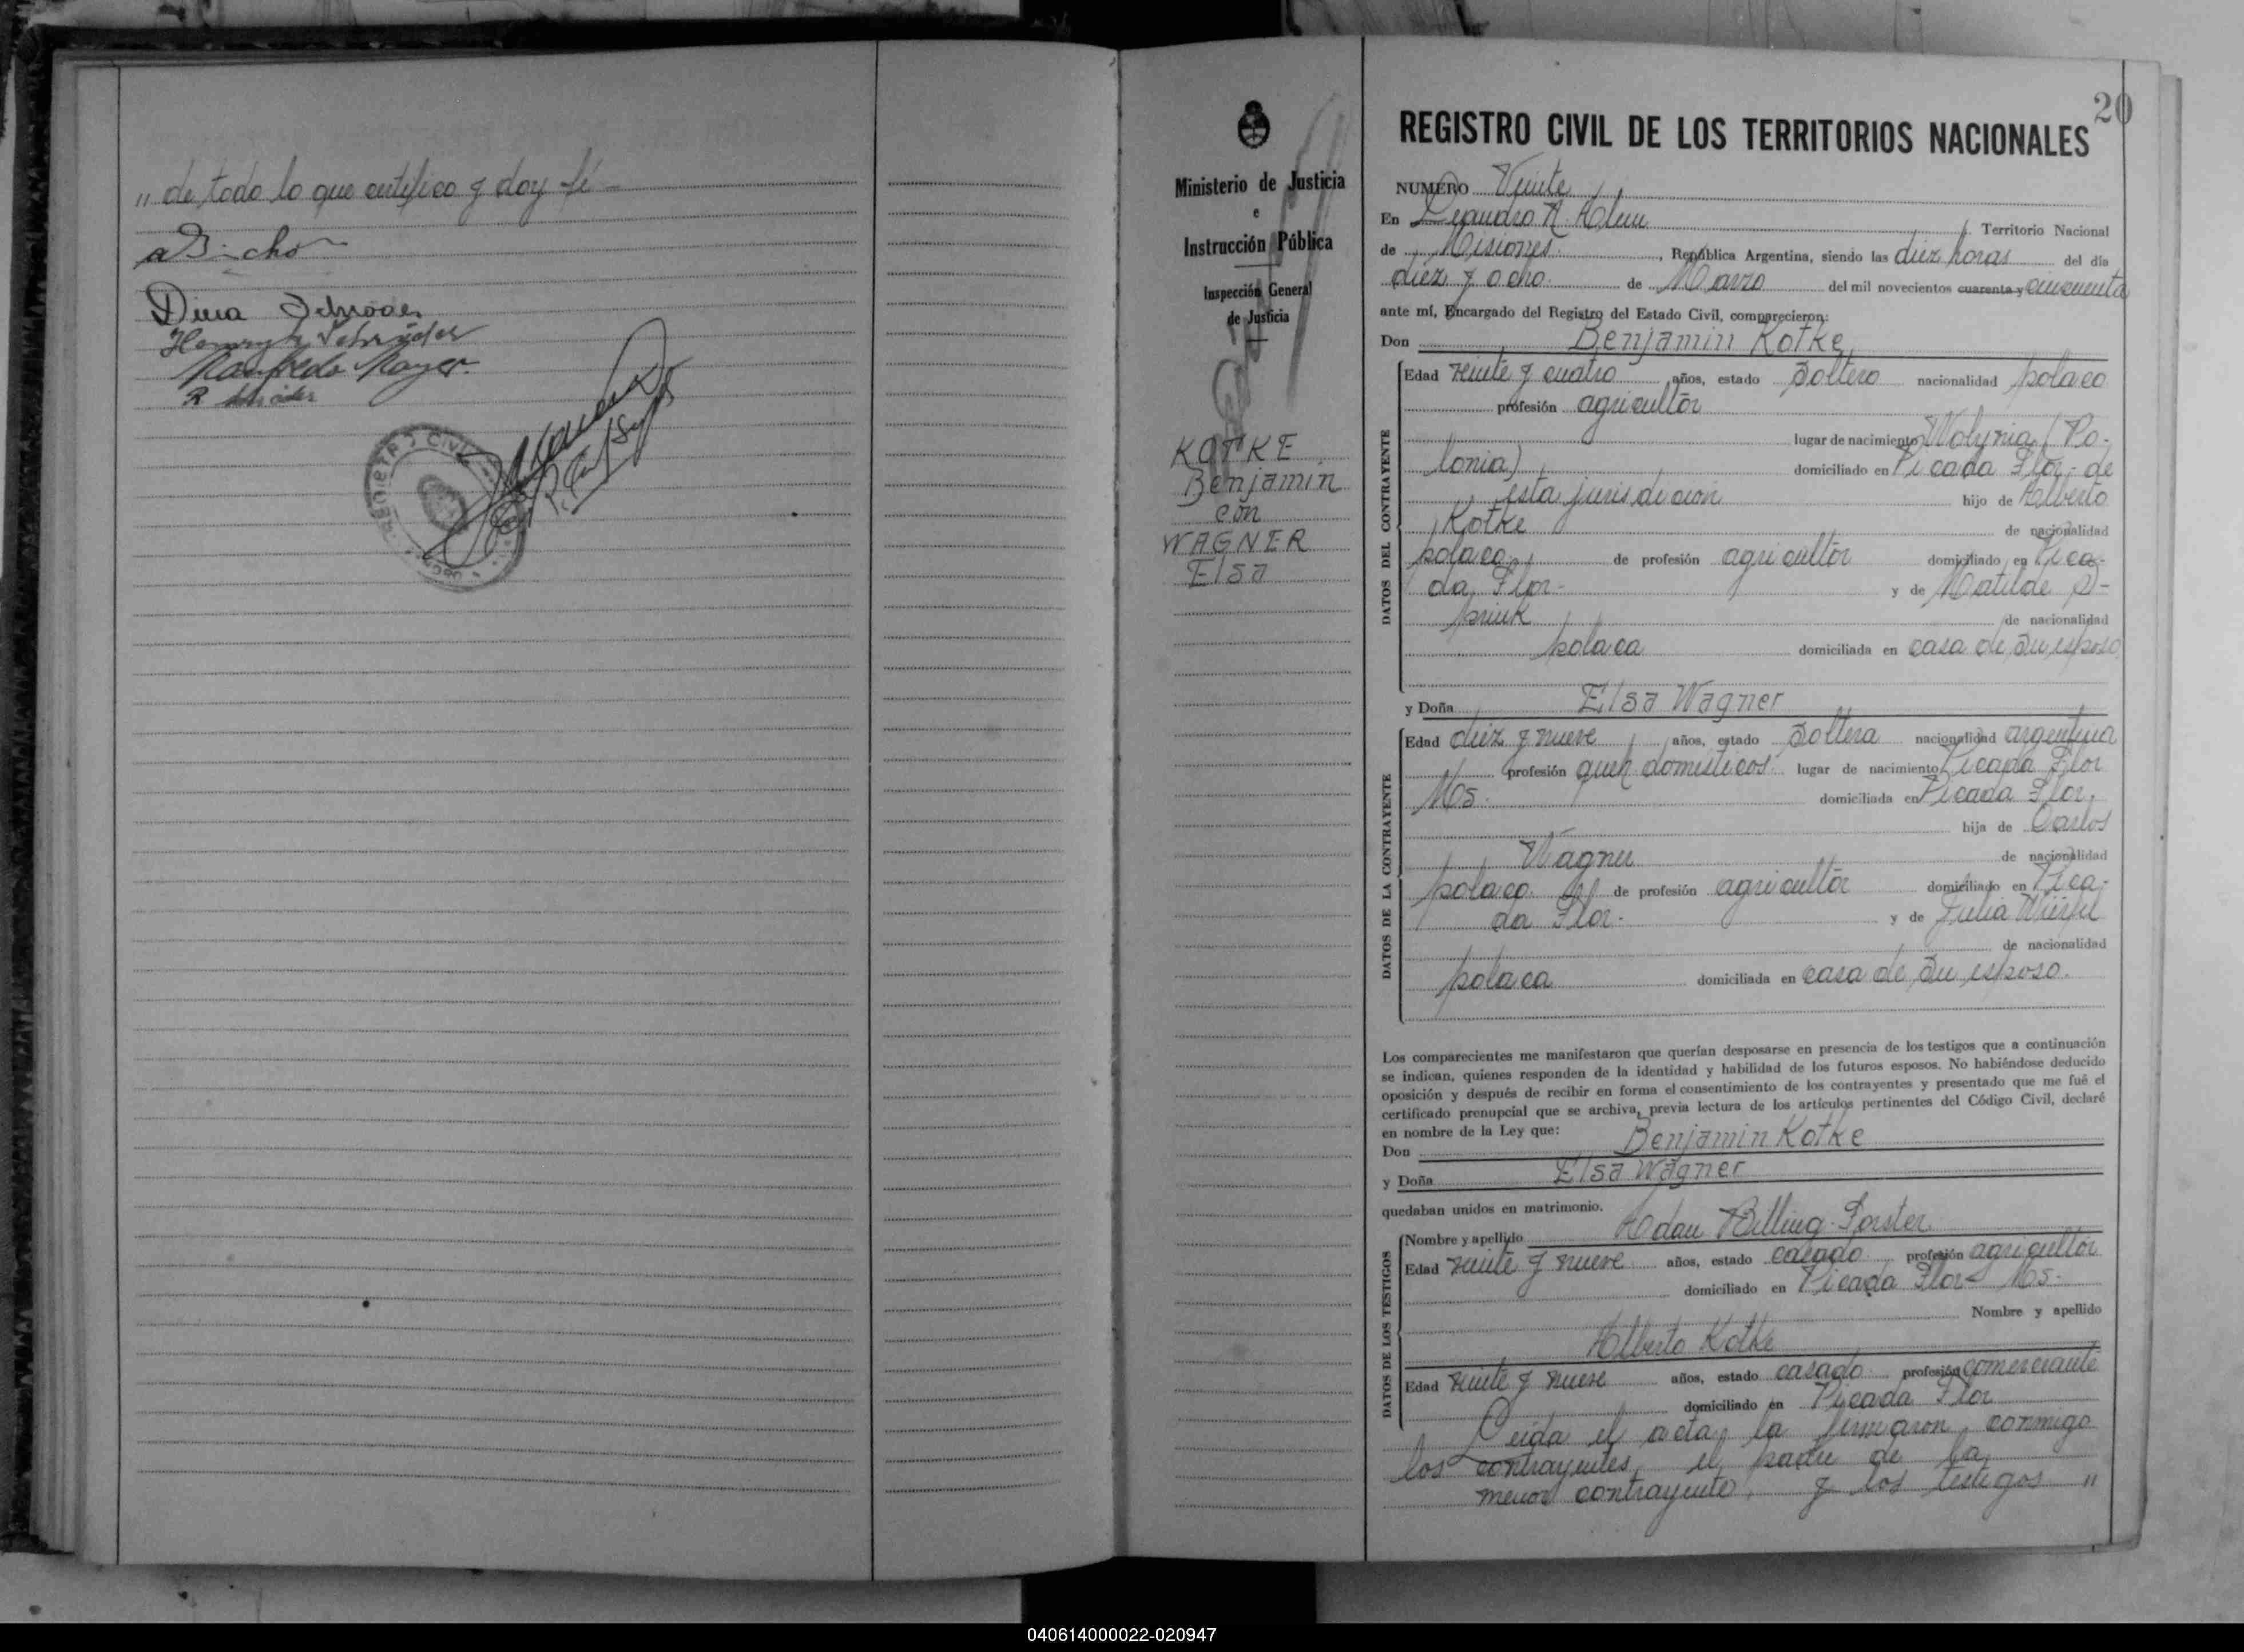 „ de todo lo que certifico y doy fé —
Dina Schröder
Henryk Schröder
Manfredo Mayer.
R Schröder
REGISTRO CIVIL
20
Ministerio de Justicia
e
Instrucción Pública
Inspección General
de Justicia
KOTKE
Benjamin
con
WAGNER
Elsa
REGISTRO CIVIL DE LOS TERRITORIOS NACIONALES
NUMERO Veinte
En Leandro N. Alem Territorio Nacional
de Misiones. , República Argentina, siendo las diez horas del día
diez y ocho de Marzo del mil novecientos cuarenta y cincuenta
ante mí, Encargado del Registro del Estado Civil, comparecieron:
Don Benjamin Kotke
DATOS DEL CONTRAYENTE
Edad veinte y cuatro años, estado soltero nacionalidad polaco
profesión agricultor
lugar de nacimiento Wolynia (Po-
lonia) domiciliado en Picada Flor- de
esta jurisdicción hijo de Alberto
Kotke de nacionalidad
polaco. de profesión agricultor domiciliado en Pica-
da Flor- y de Matilde
de nacionalidad
polaca domiciliada en casa de su esposo
y Doña Elsa Wagner
DATOS DE LA CONTRAYENTE
Edad diez y nueve años, estado soltera nacionalidad argentina
profesión queh. domesticos lugar de nacimiento Picada Flor
Mos. domiciliada en Picada Flor.
hija de Carlos
Wagner de nacionalidad
polaco. de profesión agricultor domiciliado en Pica-
da Flor- y de Julia
de nacionalidad
polaca domiciliada en casa de su esposo.
Los comparecientes me manifestaron que querían desposarse en presencia de los testigos que a continuación
se indican, quienes responden de la identidad y habilidad de los futuros esposos. No habiéndose deducido
oposición y después de recibir en forma el consentimiento de los contrayentes y presentado que me fué el
certificado prenupcial que se archiva, previa lectura de los artículos pertinentes del Código Civil, declaré
en nombre de la Ley que:
Don Benjamin Kotke
y Doña Elsa Wagner
quedaban unidos en matrimonio.
DATOS DE LOS TESTIGOS
Nombre y apellido Adan Billing-Forster
Edad veinte y nueve años, estado casado profesión agricultor
domiciliado en Picada Flor- Mos-
Nombre y apellido
Alberto Kotke
Edad veinte y nueve años, estado casado profesión comerciante
domiciliado en Picada Flor
Leida el acta, la firmaron conmigo
los contrayentes, el padre de la
menor contrayente, y los testigos „
040614000022-020947